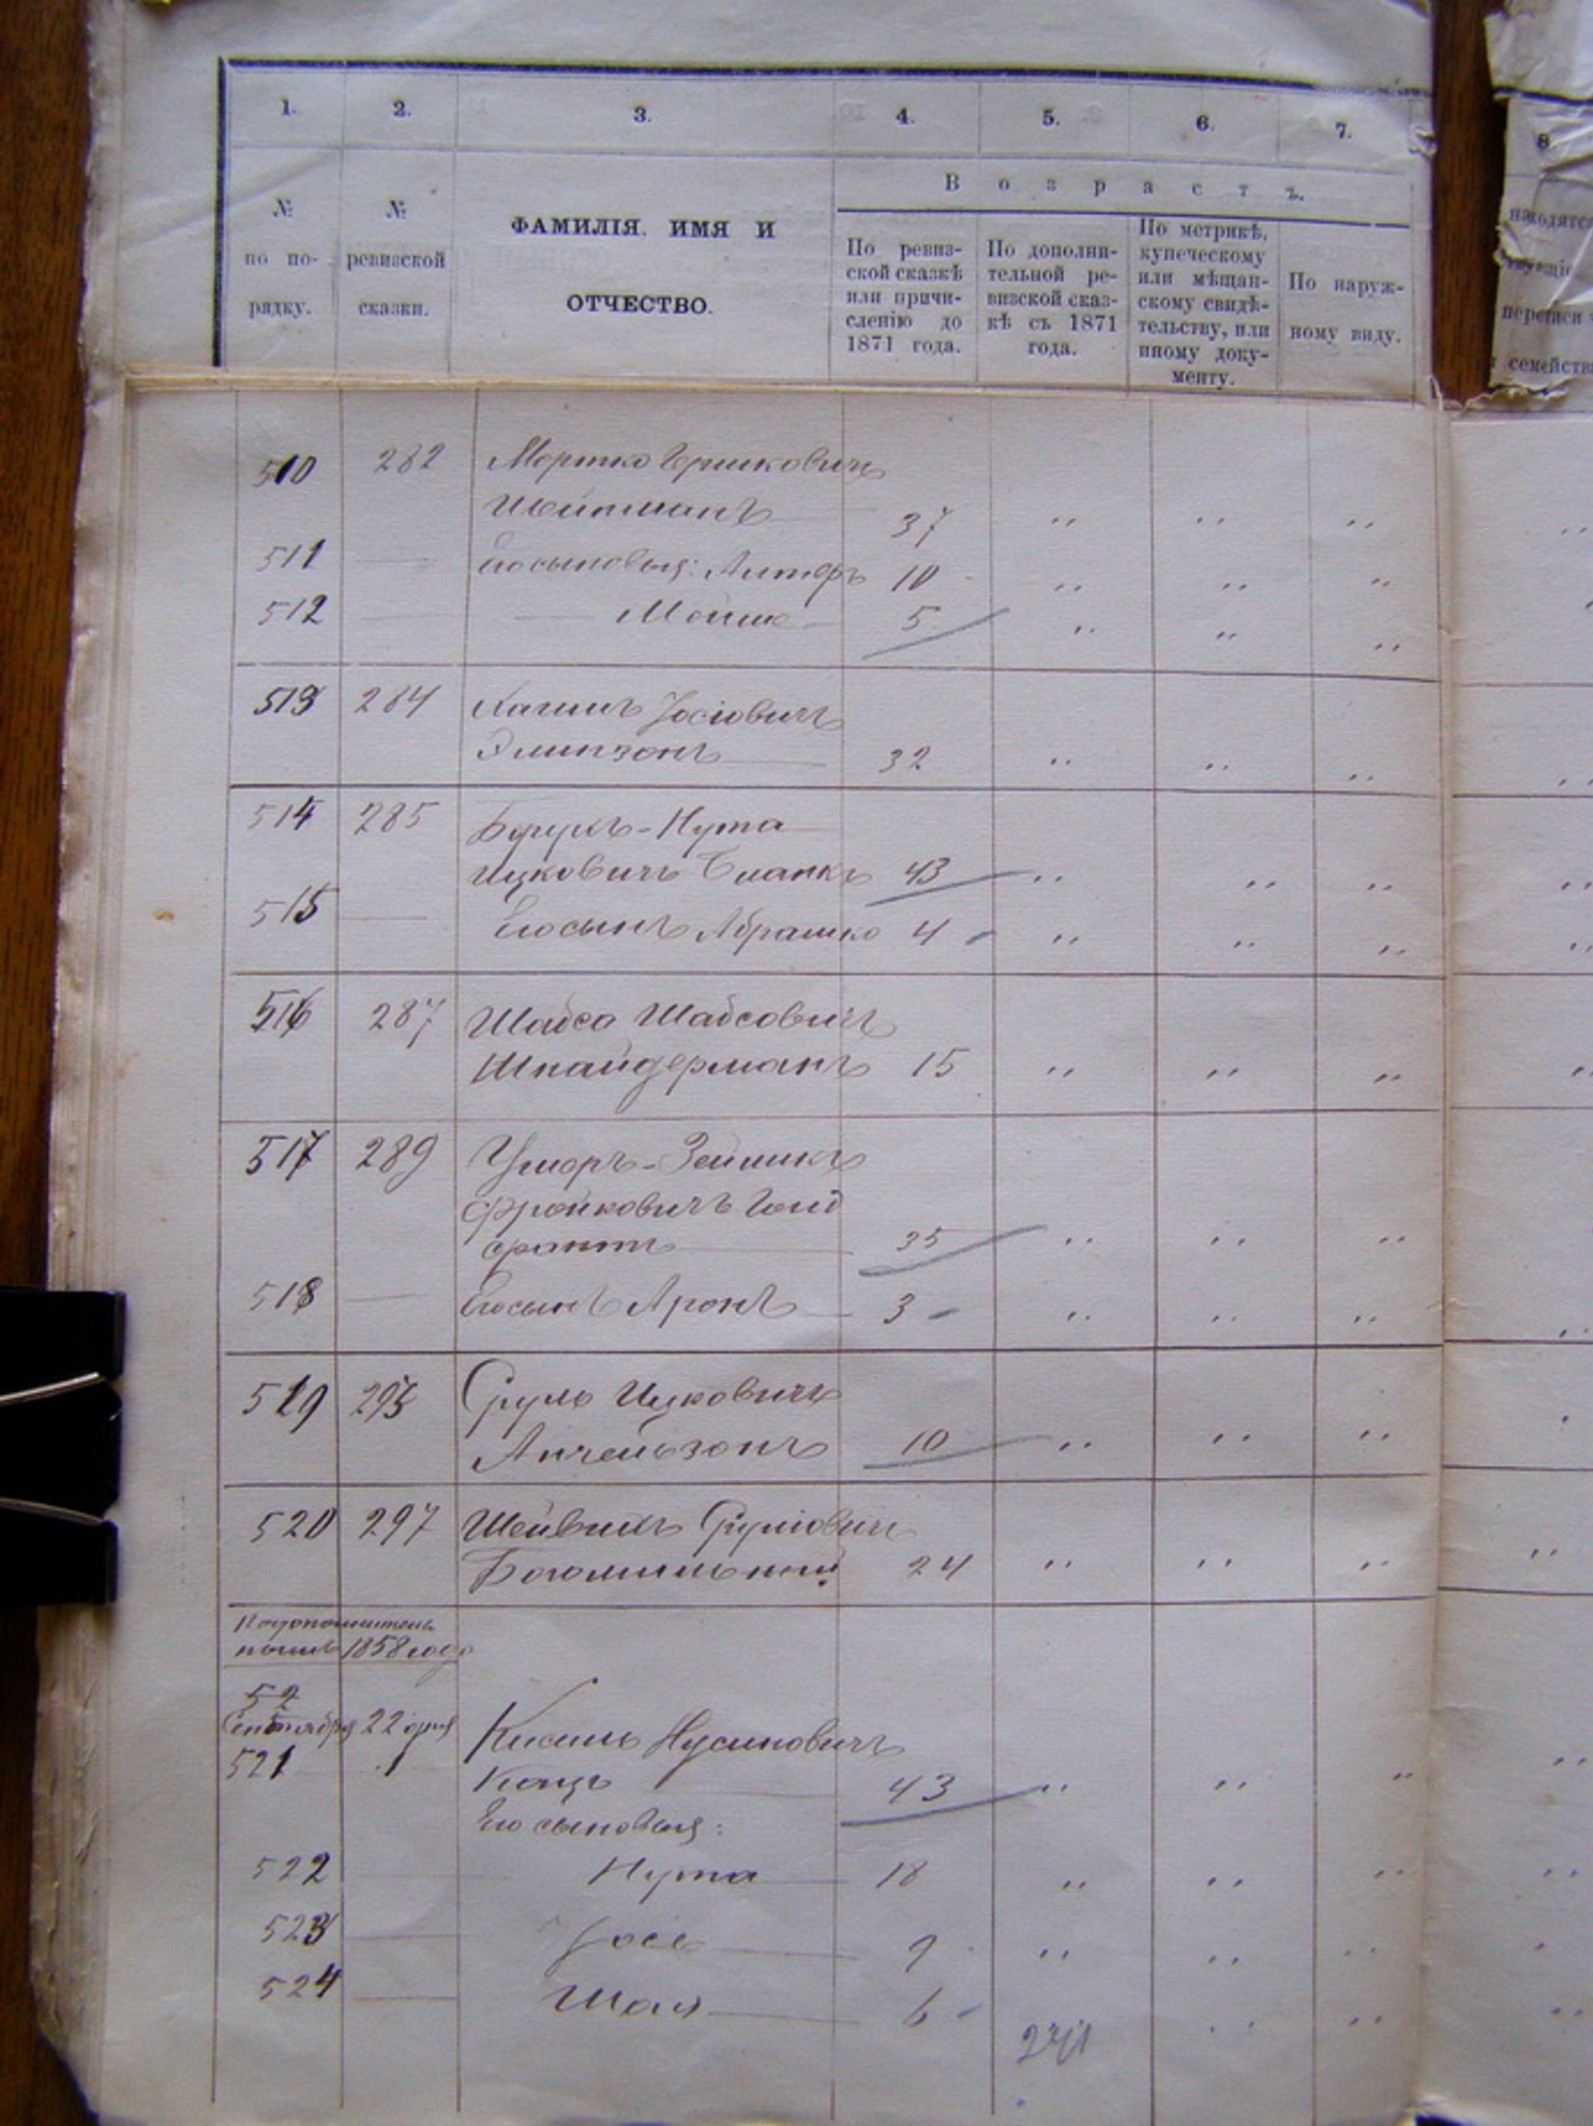 1. 2. 3. 4. 5. 6. 7.
8
Возрастъ.
№ по по-рядку.
№ ревизской сказки.
ФАМИЛІЯ, ИМЯ И
ОТЧЕСТВО.
По ревиз-
ской сказкѣ
или причи-
сленію до
1871 года.
По дополни-
тельной ре-
визской сказ-
кѣ съ 1871
года.
По метрикѣ,
купеческому
или мѣщан-
скому свидѣ-
тельству, или
иному доку-
менту.
По наруж-
ному виду.
находятся
переписи
семейств
510 282 Мортко Гершковичъ
37 „ „ „
511 Его сыновья: Алтеръ 10 „ „ „
512 Мошко 5 „ „ „
513 284 Хаимъ Іосіовичъ
32 „ „ „
514 285 -Нута
Ицковичъ Бланкъ 43 „ „ „
515 Его сынъ Абрашко 4 „ „ „
516 287 Шабса Шабсовичъ
Шнайдерманъ 15 „ „ „
517 289 Ушеръ-Зелликъ
Фроимовичъ Гольд
фантъ 35 „ „ „
518 Его сынъ Аронъ 3 „ „ „
519 295 Сруль Ицковичъ
10 „ „ „
520 297 Шеивихъ Сруліовичъ
Богомильный 24 „ „ „
1858 года
52
Сентября 22 дня
521 Кисиль Нусиновичъ
Кацъ 43 „ „ „
Его сыновья:
522 Нута 18 „ „ „
523 Іось 9 „ „ „
524 Шая 6 „ „
241